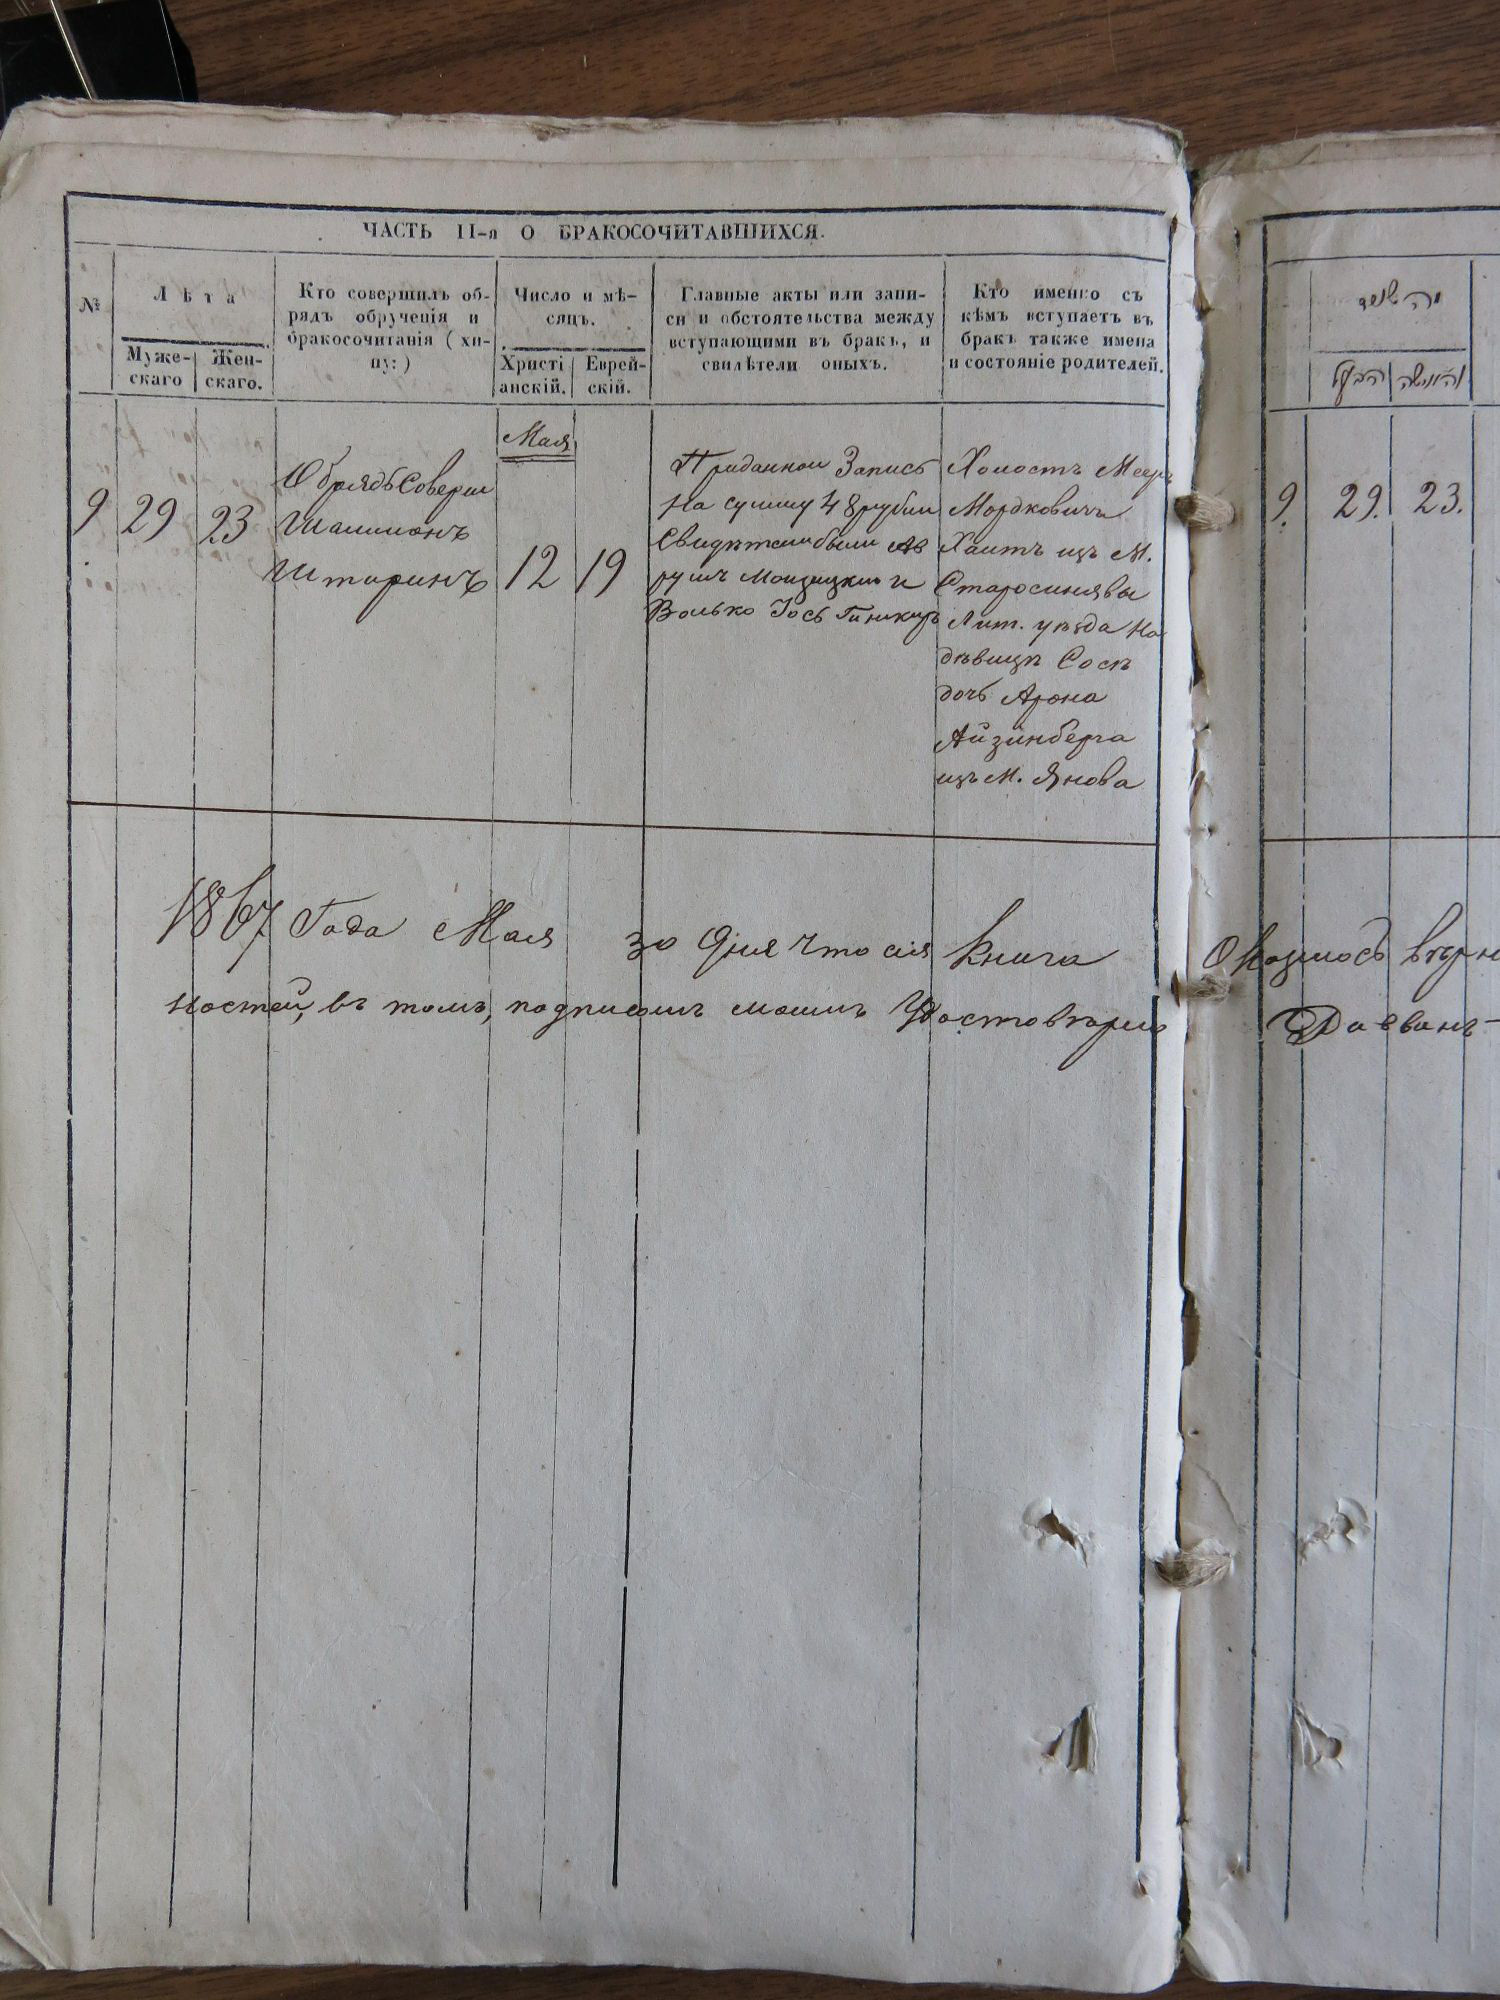 ЧАСТЬ II-я О БРАКОСОЧИТАВШИХСЯ.
№
Лѣта
Муже-
скаго
Жен-
скаго.
Кто совершилъ об-
рядъ обрученія и
бракосочитанія (хи-
пу:)
Число и мѣ-
сяцъ.
Христі
анскій.
Еврей-
скій.
Главные акты или запи-
си и обстоятельства между
вступающими въ бракъ, и
свидѣтели оныхъ.
Кто именно съ
кѣмъ вступаетъ въ
бракъ также имена
и состояніе родителей.
9
29
23
Обрядъ Соверши
Шлиомонъ
Штаринъ
Мая
12
19
Приданной Запись
на сумму 48 рубли
Свидѣтели были Ав
румъ и
Волько Іось
Холостъ Мееръ
Мордковичъ
Хаитъ изъ М.
Старосинявы
Лит. уѣзда на
дѣвицѣ Сосѣ
дочь Арона
Айзинберга
изъ м. Янова
1867 Года Мая 30 дня что сія Книга
ностей, въ томъ, подписомъ нашимъ Удостовѣряю
שנים
הבעל
והאישה
9.
29.
23.
Оказалось вѣрн